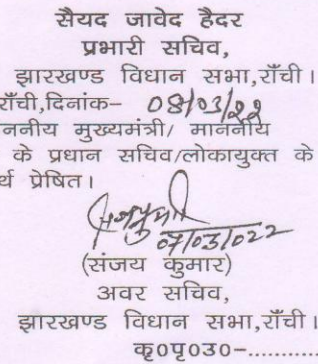 सैयद जावेद हैदर
प्रभारी सचिव,
झारखण्ड विधान सभा,राँची।
राँची,दिनांक- 08/03/22
माननीय मुख्यमंत्री/ माननीय
के प्रधान सचिव/लोकायुक्त के
र्थ प्रेषित।
07/03/2022
(संजय कुमार)
अवर सचिव,
झारखण्ड विधान सभा,राँची।
कृ०पृ०उ०-...........